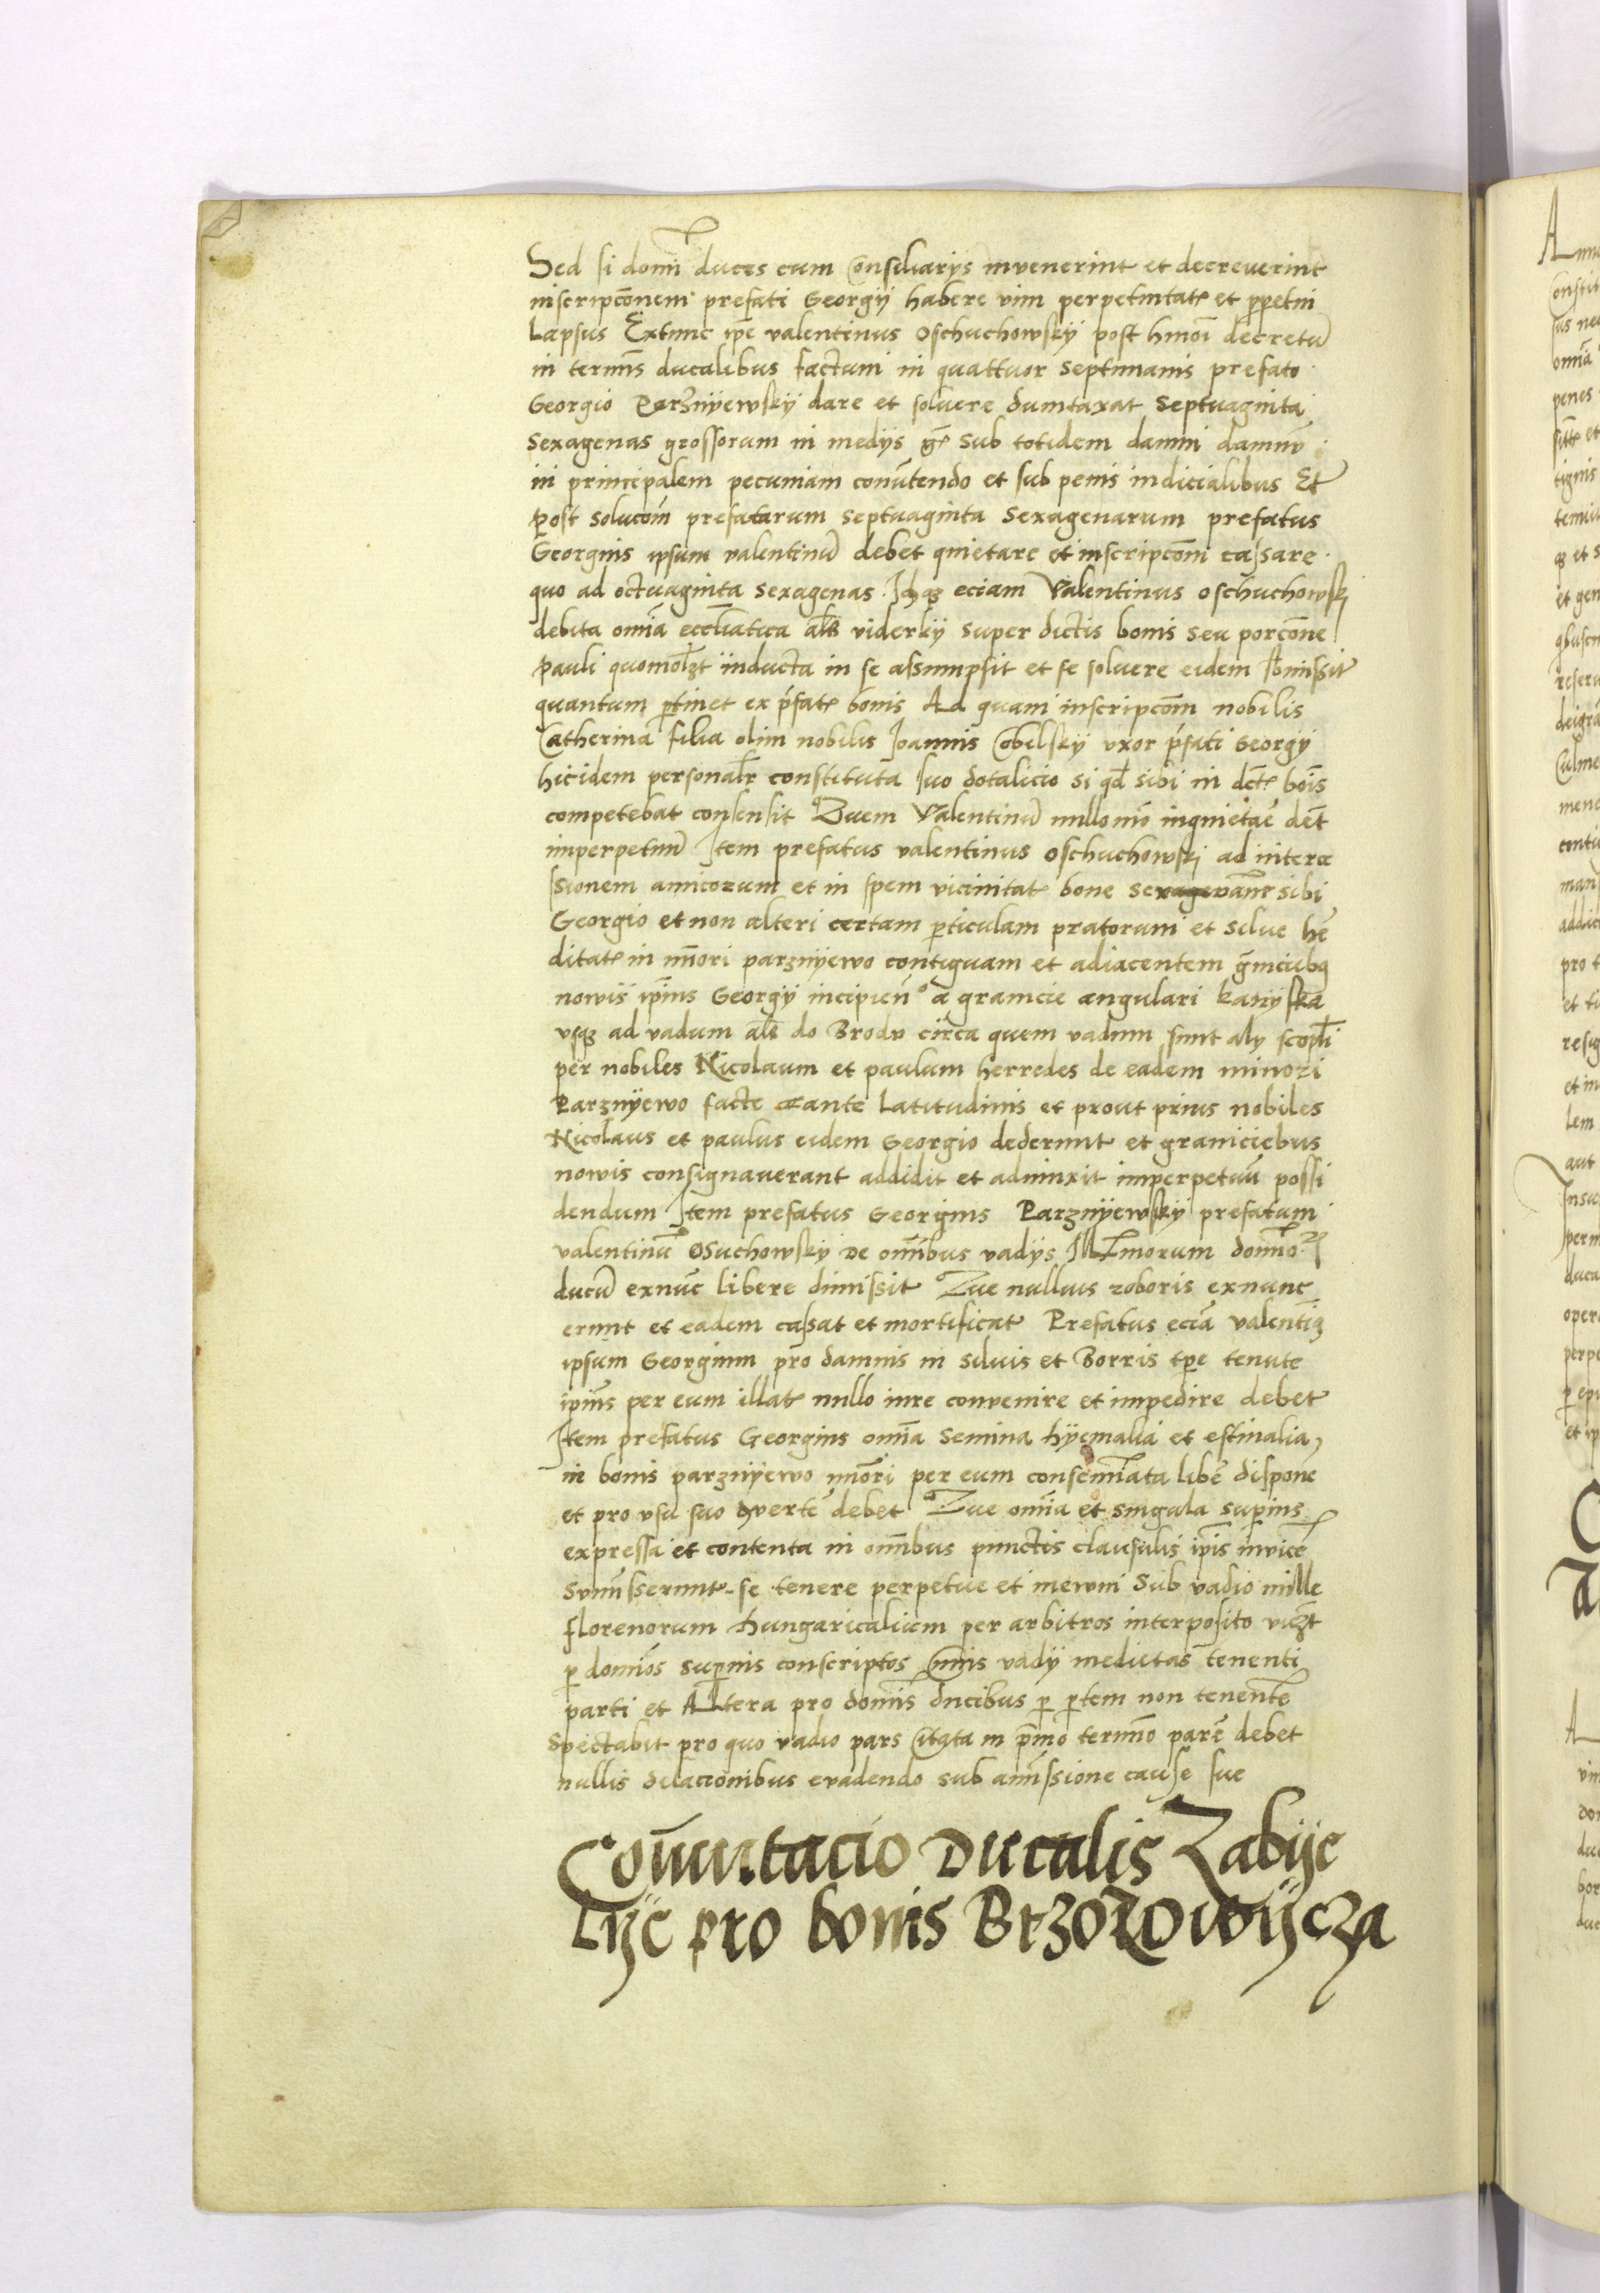 Sed si domi duces cum Consiliarys invenerint et decreverint
inscripcōnem prefati Georgij habere vim perpetuitatꝭ et ꝑpetui
Lapsus Extunc ip̄e valentinus oschuchowskÿ post hmōi decretū
in termīs ducalibus factum in quattuor septimanis prefato
Georgio Parznÿewskÿ dare et soluere dumtaxat septuaginta
sexagenas grossorum in medÿs gꝭ sub totidem damni damnū
in principalem pecuniam conūtendo et sub penis iudicialibus Et
Post solucōm prefatarum septuaginta sexagenarum prefatus
Georgius ipsum valentinū debet quietare et inscripcōm cassare
quo ad octuaginta sexagenas Idqꝫ eciam Valentinus oschuchowskj
debita omīa eccl̄iastica al̄s viderkÿ super dictis bonis seu porcōne
Pauli quomol̄ꝫt inducta in se assumpsit et se soluere eidem sbmissit
quantum ꝑtinet ex p̄fatꝭ bonis Ad quam inscripcōm nobilis
Catherina filia olim nobilis Joannis Cobelskÿ vxor p̄fati Georgÿ
hicidem personalr̄ constituta suo dotalicio si qd̄ sibi in dc̄tꝭ boīs
competebat consensit Quem Valentinū nullomō inquietar̄e de͞t
imperpetuū Item prefatus valentinus oschuchowskj ad interce
ssionem amicorum et in spem vicinitatꝭ bone sibi
Georgio et non alteri certam ꝑticulam pratorum et silue he͞
ditatꝭ in mīori parznÿewo contiguam et adiacentem gr̄niciebꝫ
nowis ip̄ius Georgÿ incipien̄ a granicie angulari kanÿska
vsqꝫ ad vadum al̄s do Brodu circa quem vadum sunt aly scopl̄i
per nobiles Nicolaum et paulum herredes de eadem minori
Parznÿewo facte ante latitudinis et prout prius nobiles
Nicolaus et paulus eidem Georgio dederunt et graniciebus
nowis consignaverant addidit et adiunxit imperpetuū possi
dendum Item prefatus Georgius Parznÿewskÿ prefatum
valentinū Osuchowskÿ de omībus vadÿs Illr̄morum domīoꝝ
ducū exnūc libere dimissit Que nullius roboris exnunc
erunt et eadem cassat et mortificat Prefatus eciā valentiꝫ
ipsum Georgium pro damnis in siluis et Borris tp̄e tenute
ip̄ius per eum illatꝭ nullo iure convenire et impedire debet
Item prefatus Georgius omīa semina hÿemalia et estiualia
in bonis parznÿewo mīori per eum consemīata liber̄e disponer̄e
et pro vsu suo ꝯverter̄e debet Que omīa et singula superius
expressa et contenta in omībus punctis clausulis ip̄is inuicē
submisserunt se tenere perpetue et in ewm Sub vadio mille
florenorum hungaricalium per arbitros interposito viꝫt
ꝑ domīos superius conscriptos Cuius vadÿ medietas tenenti
parti et Altera pro domīs ducibus ꝑ ꝑtem non tenentē
spectabit pro quo vadio pars citata in prīmo termīo parer̄e debet
nullis dilacionibus evadendo sub amissione cause sue
Com̄utacio Ducalis Zabÿe
Lÿe pro bonis Brzozowÿcza